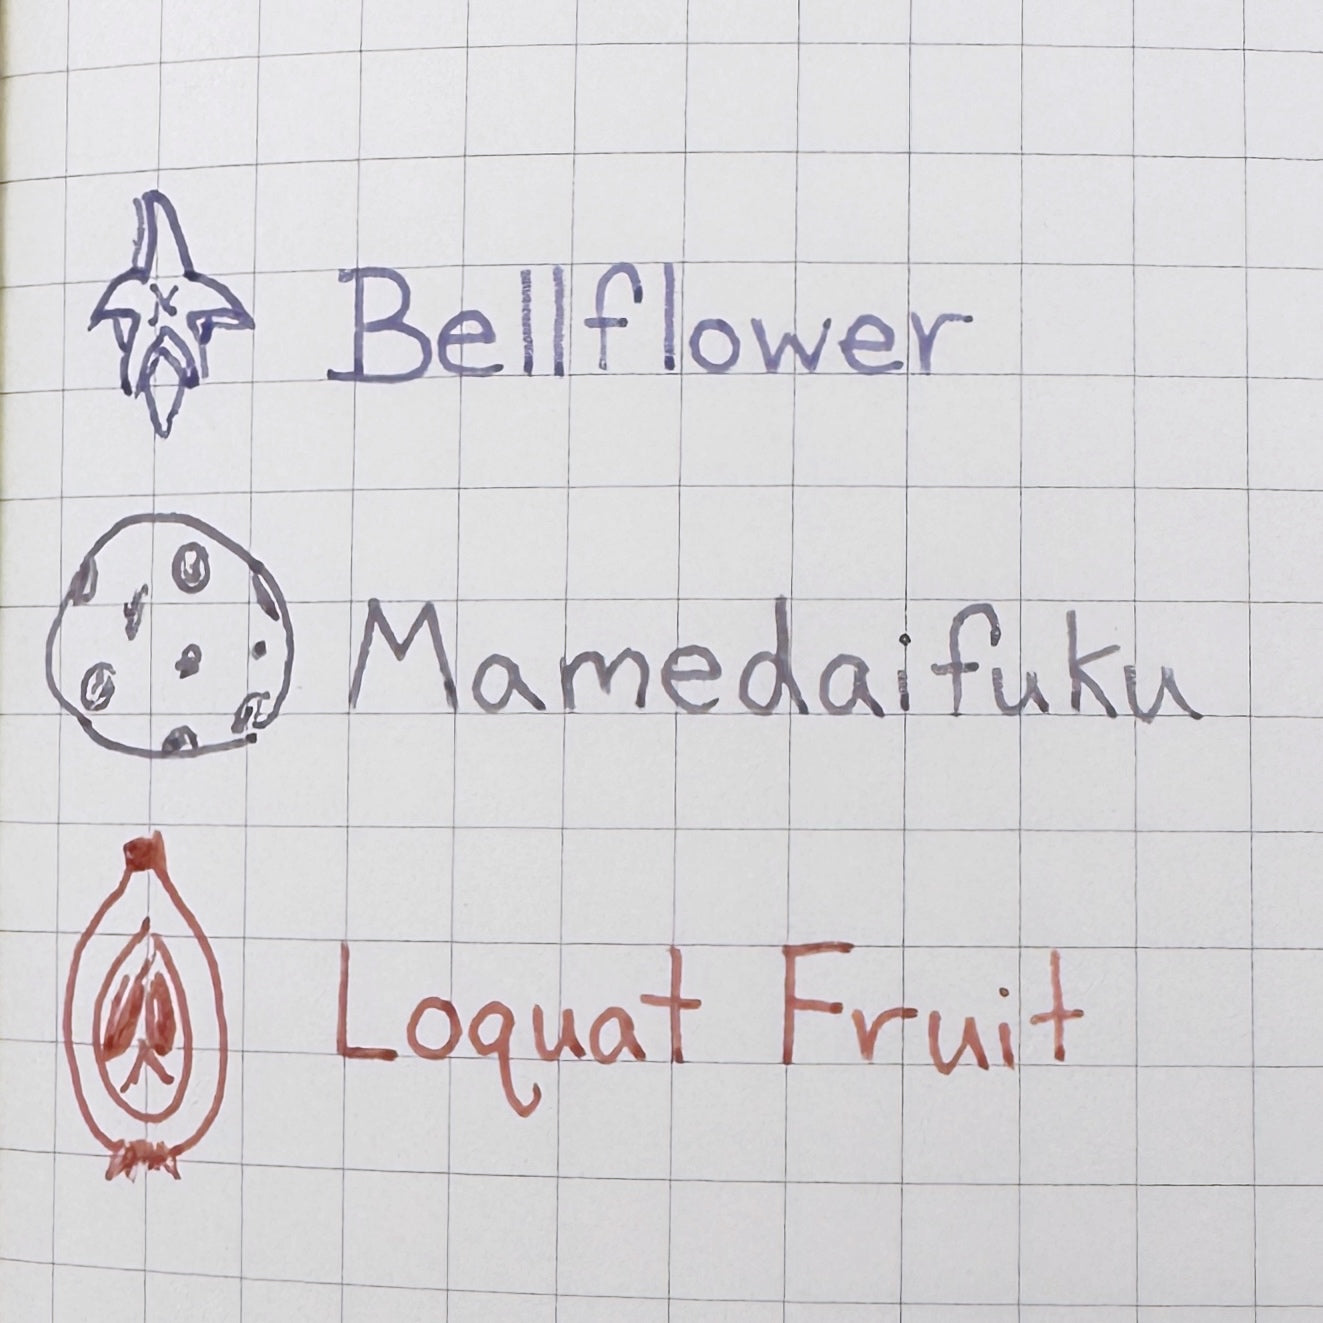 Bellflower
Mamedaifuku
Loquat Fruit